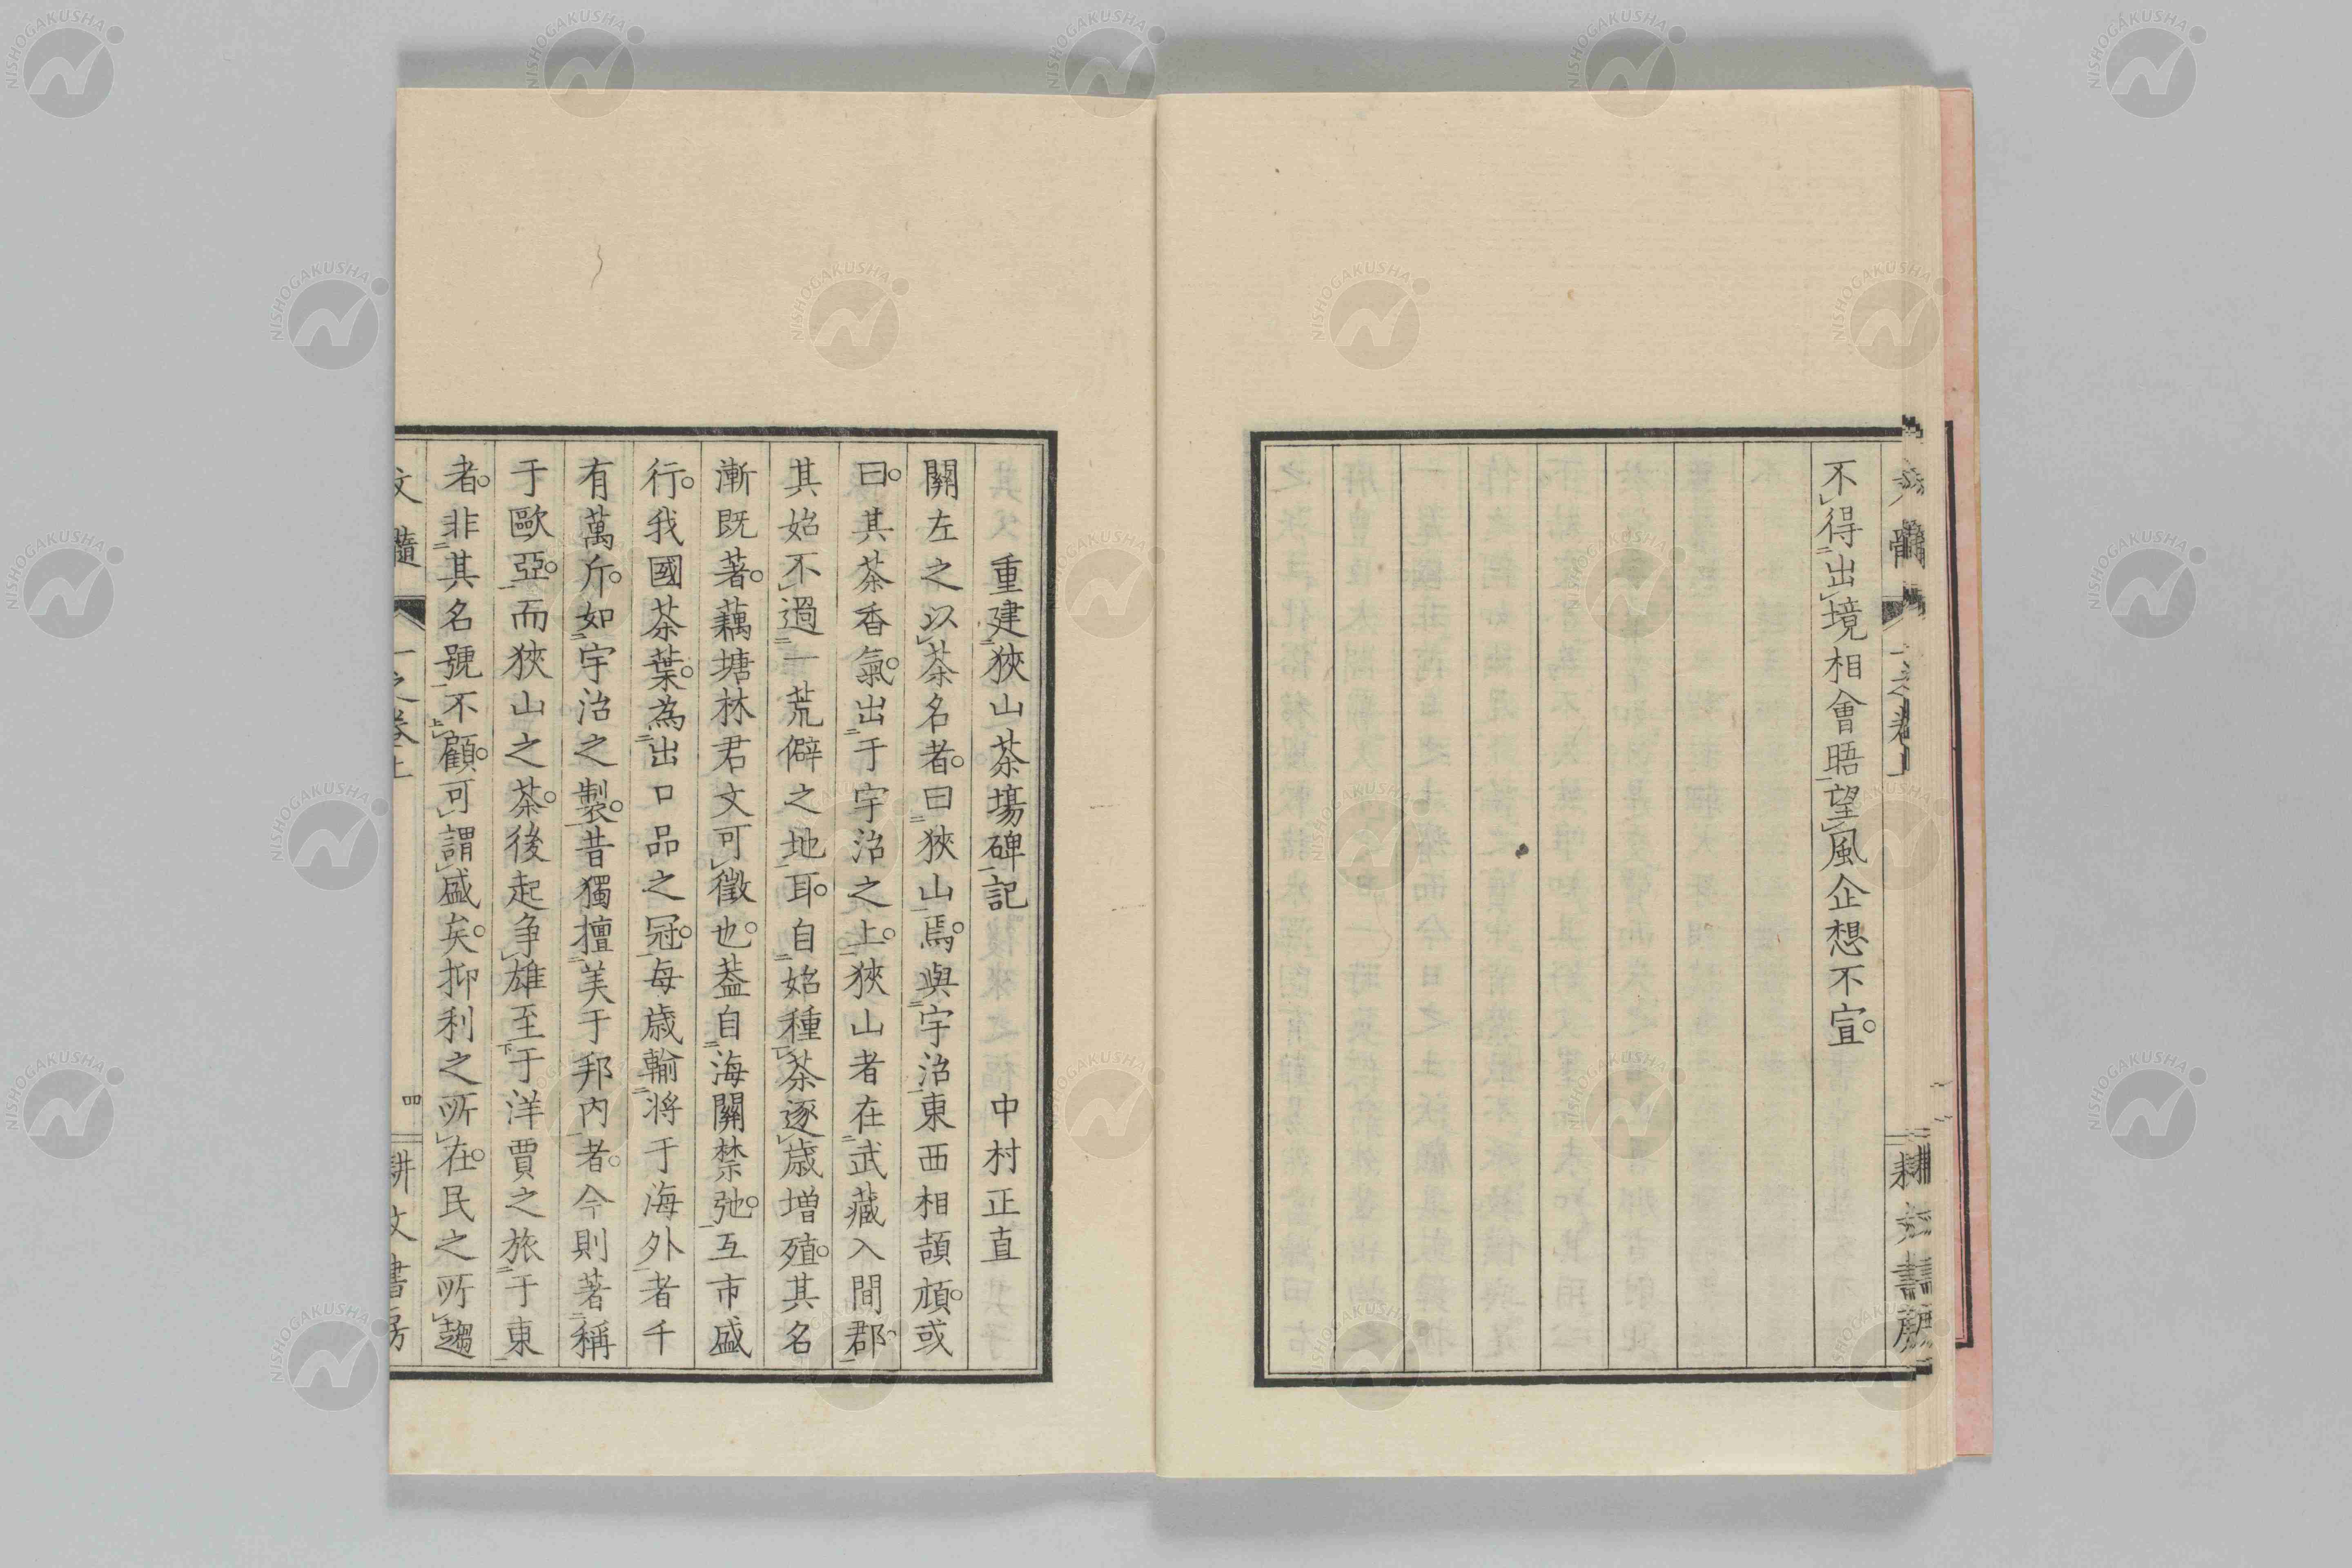 不得出境相會晤望風企想不宣。
重建狹山茶場碑記 中村正直
關左之以茶名者。曰狹山焉。與宇治東西相頡頏。或
曰。其茶香氣。出于宇治之上。狹山者在武藏入間郡。
其始不過一荒僻之地耳。自始種茶逐歲增殖。其名
漸既著。藕塘林君文可徵也。蓋自海關禁弛。互市盛
行。我國茶葉。為出口品之冠。每歲輸將于海外者千
有萬斤。如宇治之製。昔獨擅美于邦內者。今則著稱
于歐亞。而狹山之茶。後起争雄至于洋賈之旅于東
者。非其名號不顧。可謂盛矣。抑利之所在。民之所趨
文髓 一之卷上 四 耕文書房
NISHOGAKUSHA